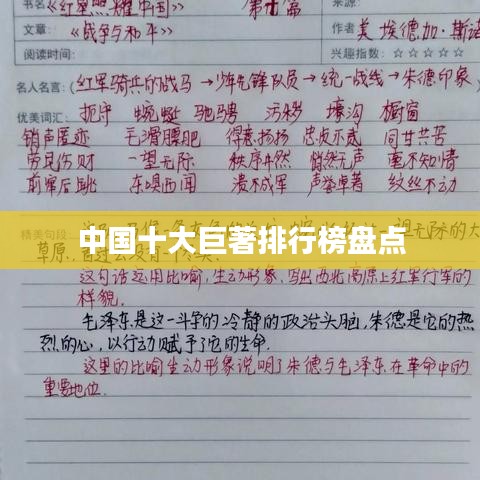 书名《红星照耀中国》 第十篇
文章:《战争与和平》 作者 美 埃德加·斯诺
阅读时间: 兴趣指数:☆☆☆☆☆
名人名言:红军骑兵的战马→少年先锋队员→统一战线→朱德印象
优美词汇: 扼守 蜿蜒 驰骋 污秽 壕沟 橱窗
销声匿迹 毛滑腰肥 得意扬扬 忠贞不贰 同甘共苦
劳民伤财 一望无际 秩序井然 悄然无声 毫不知情
前窜后跳 东嗅西闻 溃不成军 声誉卓著 纹丝不动
精美句段: 望无际的大
中国十大巨著排行榜盘点
草原,
这句话运用比喻,生动形象,写出西北高原上红军行军的
样貌。
毛泽东是这一斗争的冷静的政治头脑,朱德是它的热
烈的心,以行动赋予了它的生命.
这里的比喻生动形象说明了朱德与毛泽东在革命中的
重要地位.